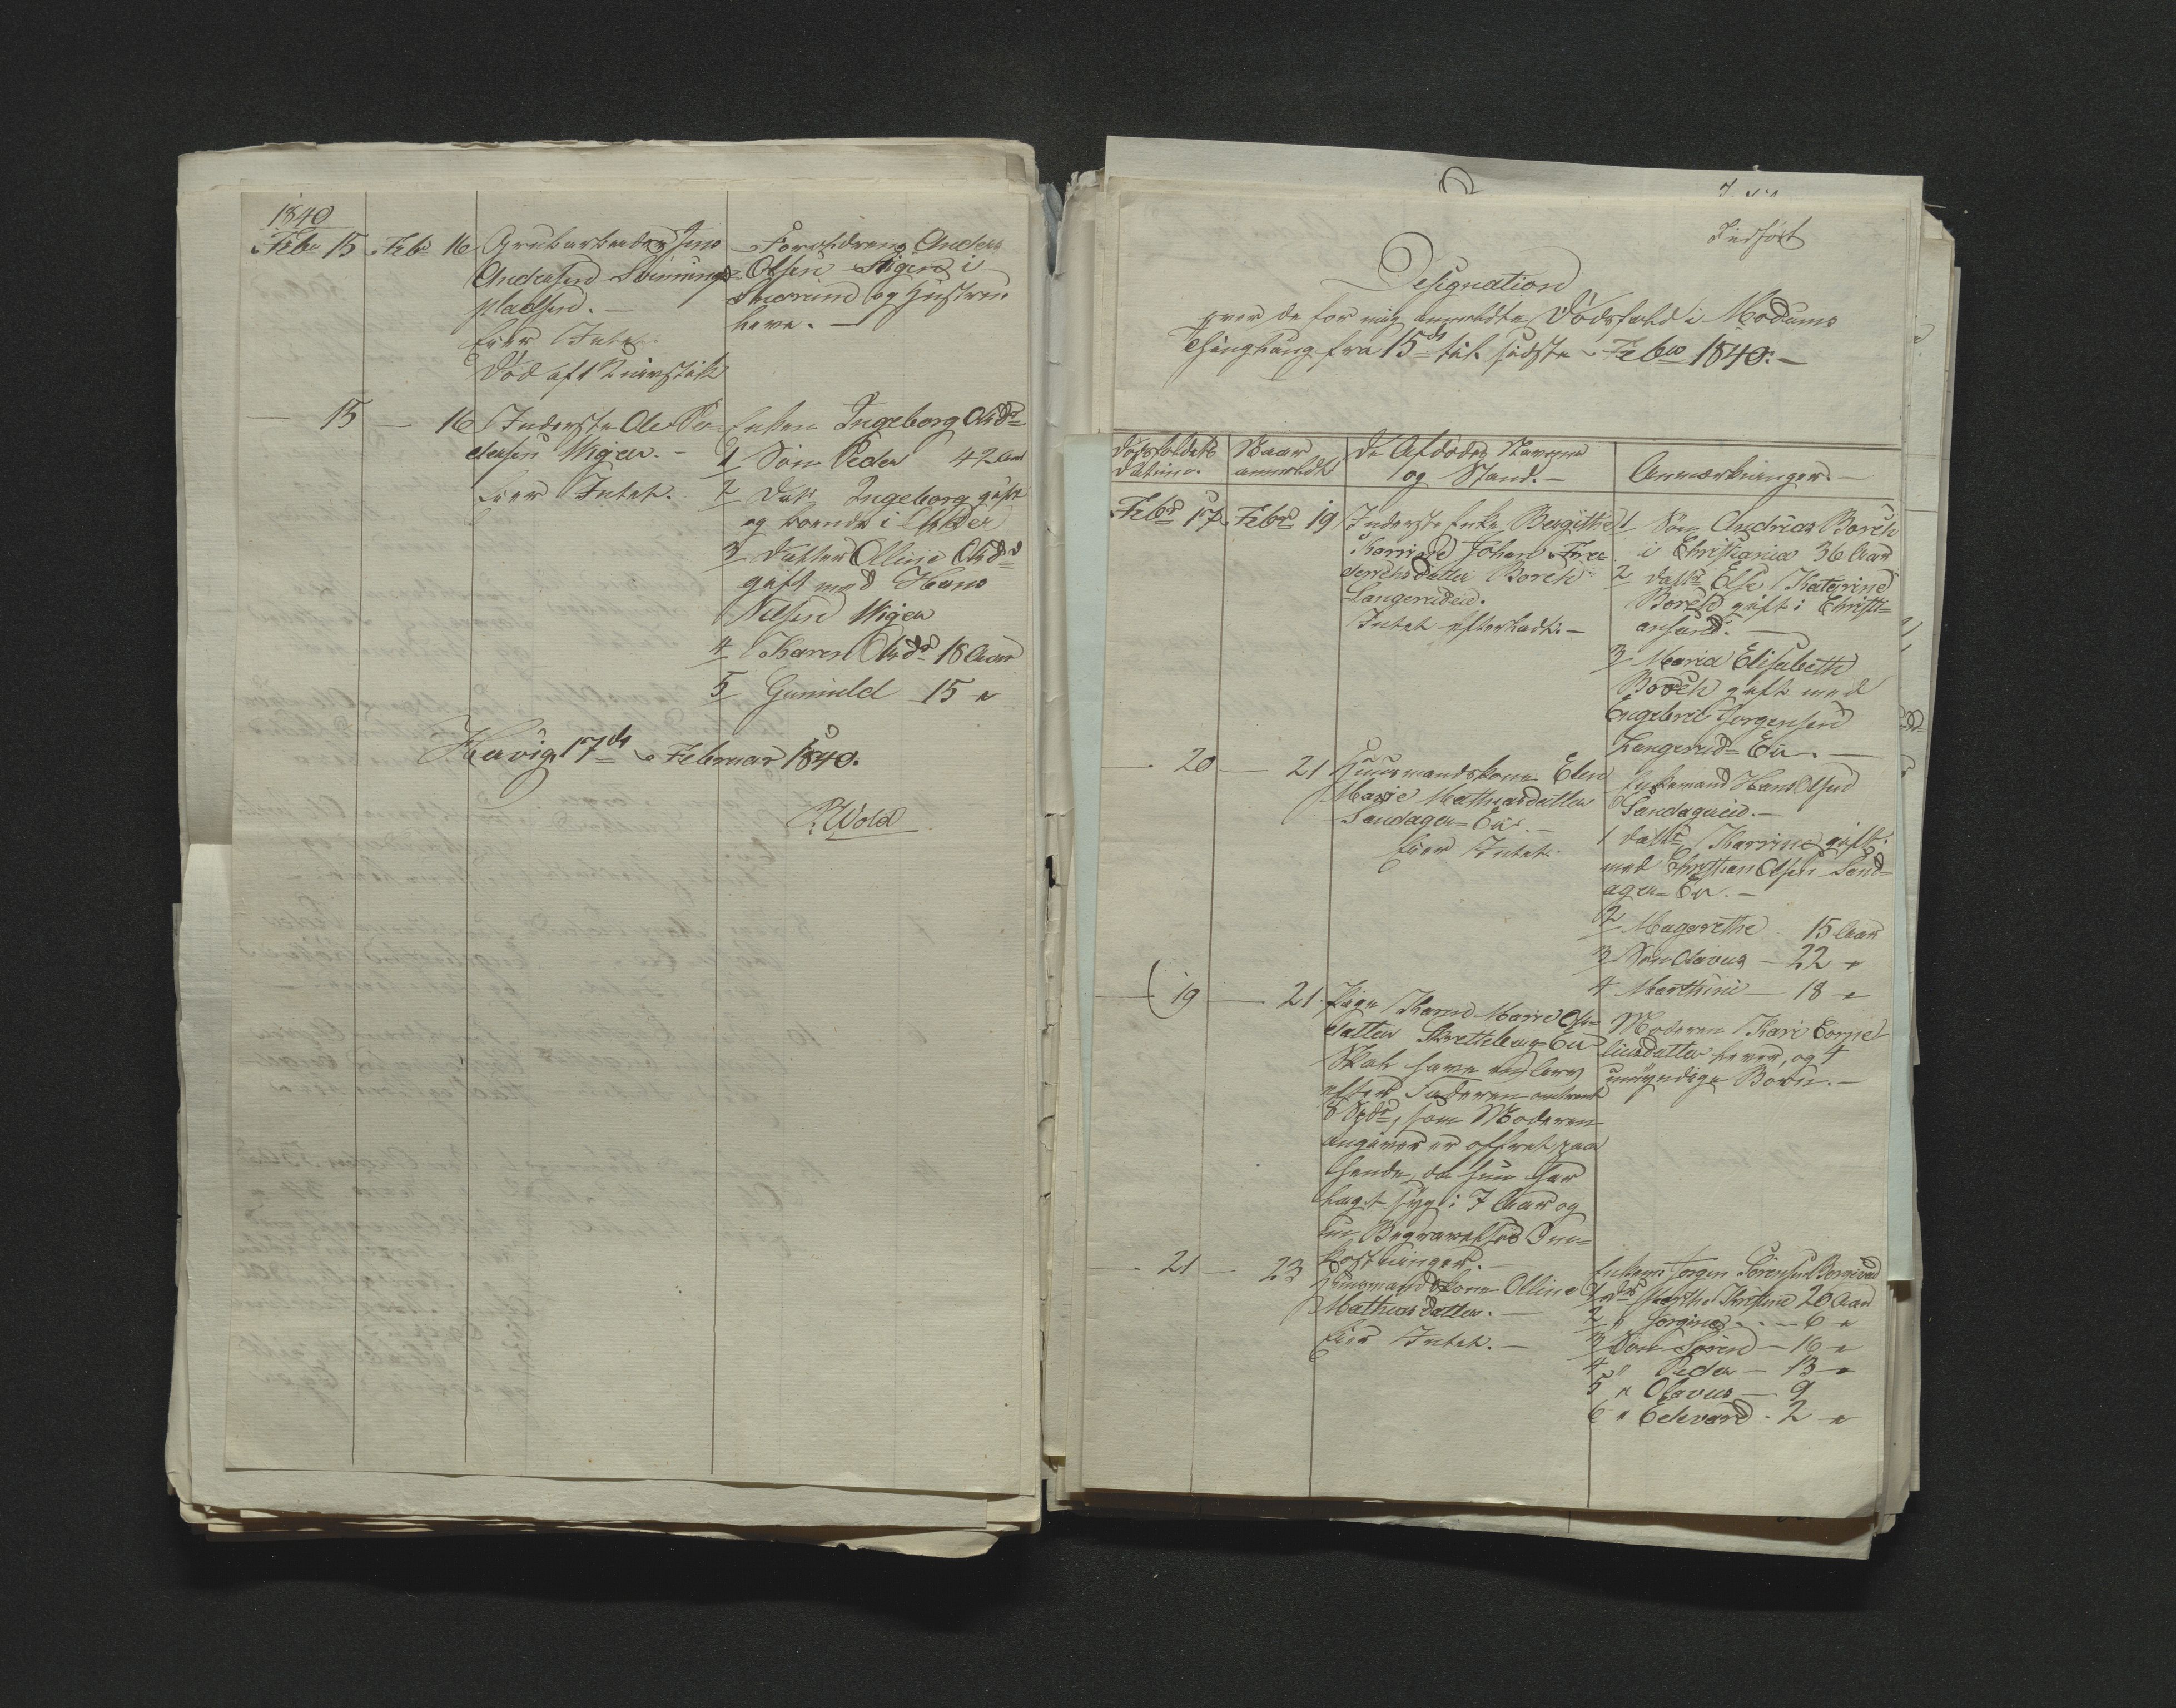 1840
Febr 15
Febr 16
Grubearbeider Jens
Andersen Svinnings-
pladsen. —
Eier Intet.
Død af
Forældrene Anders
Olsen Stigen i
Snarum og Hustrue
leve. —
— 15
— 16
Inderste Ole Pe-
dersen Wigen. —
Eier Intet.
Enken Ingeborg Olsdr
1 Søn Peder 42 Aar
2 Datr Ingeborg gift
og boende i
3 Datter Olline Olsdr
gift med Hans
Nielsen Wigen
4 Karen Olsdr 18 Aar
5 Gunild 15 "
Hærvig 17de Februar 1840.
P. Wold
Indført
Designation
over de for mig anmeldte Dødsfald i Modums
Thinglaug fra 15de til sidste Febr 1840. —
Dødsfaldets
Datum.
Naar
anmeldt
De Afdødes Navne
og Stand. —
Anmærkninger —
Febr 17
Febr 19
Inderste Enke Bergitha
Karrine Johan Fre-
derichsdatter Borch
Langerudeie.
Intet efterladt. —
1 Søn Andreas Borch
i Christiania 36 Aar
2 Dattr Else Katarine
Borch gift i Christi-
ansand. —
3 Maria Elisabeth
Borch gift med
Engebret Jørgensen
Langerud-Eie. —
— 20
— 21
Huusmandskone Elen
Marie Mathiasdatter
Sandager-Eie. —
Eier Intet.
Enkemand Hans Olsen
Sandagereie. —
1 Dattr Karrine gift
med Christian Olsen Sand-
ager-Eie. —
2 Magrethe 15 Aar
3 Søn Olavus — 22 "
4 Marthine — 18 "
— 19
— 21
Pige Karen Marie Ols-
datter Skretteberg-Eie
Skal have en Arv
efter Faderen omtrent
8 Spdr, som Moderen
angiver er offret paa
hende, da hun har
lagt syg i 7 Aar og
til Begravelses Om-
kostninger. —
Moderen Kari Corne-
liusdatter lever, og 4
umyndige Børn. —
— 21
— 23
Huusmandskone Olline
Mathiasdatter. —
Eier Intet. —
Enkem: Jørgen Sørensen
1 Dr Marthe Kirstine 20 Aar
2 " Jorgine — 6 "
3 Søn Søren — 16 "
4 " Peder — 13 "
5 " Olavus — 9
6 " Edevard — 2 "